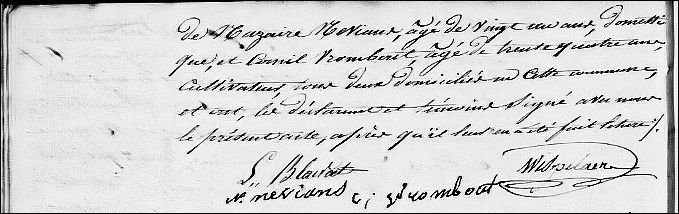 de Nazaire Nevians, agé de vingt un ans, domesti-
que, et Cornil Vrombout, agé de trente quatre ans
cultivateur, tous deux domiciliés en cette commune,
et ont, les déclarant et témoins signé avec nous
le présent acte, après qu'il leur en a été fait lecture /.
L. Bla
N. nevians c; vrombout